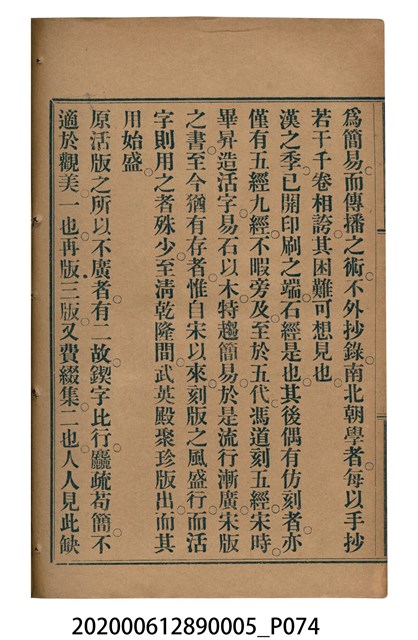 爲簡易而傳播之術不外抄錄南北朝學者每以手抄
若干千卷相誇其困難可想見也
漢之季已開印刷之端石經是也其後偶有仿刻者亦
僅有五經九經不暇旁及至於五代馮道刻五經宋時
畢昇造活字易石以木特趨簡易於是流行漸廣宋版
之書至今猶有存者惟自宋以來刻版之風盛行而活
字則用之者殊少至淸乾隆間武英殿聚珍版出而其
用始盛
原活版之所以不廣者有二故鍥字比行麤疏苟簡不
適於觀美一也再版三版又費綴集二也人人見此缺
202000612890005_P074